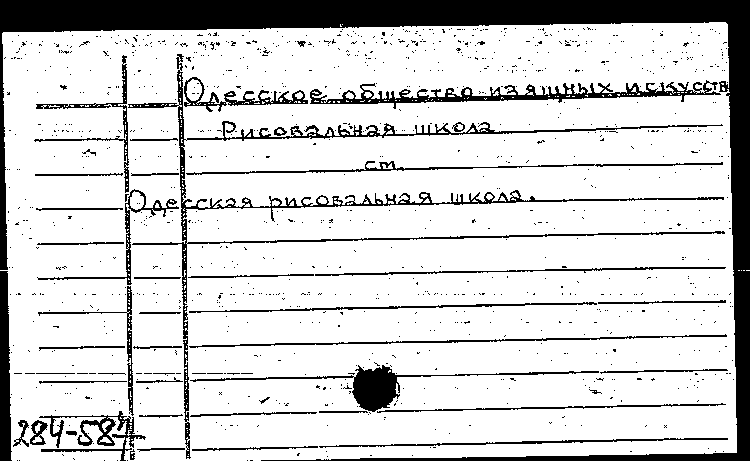 Одесское общество изящных искусств
Рисовальная школа
см.
Одесская рисовальная школа.
284-584